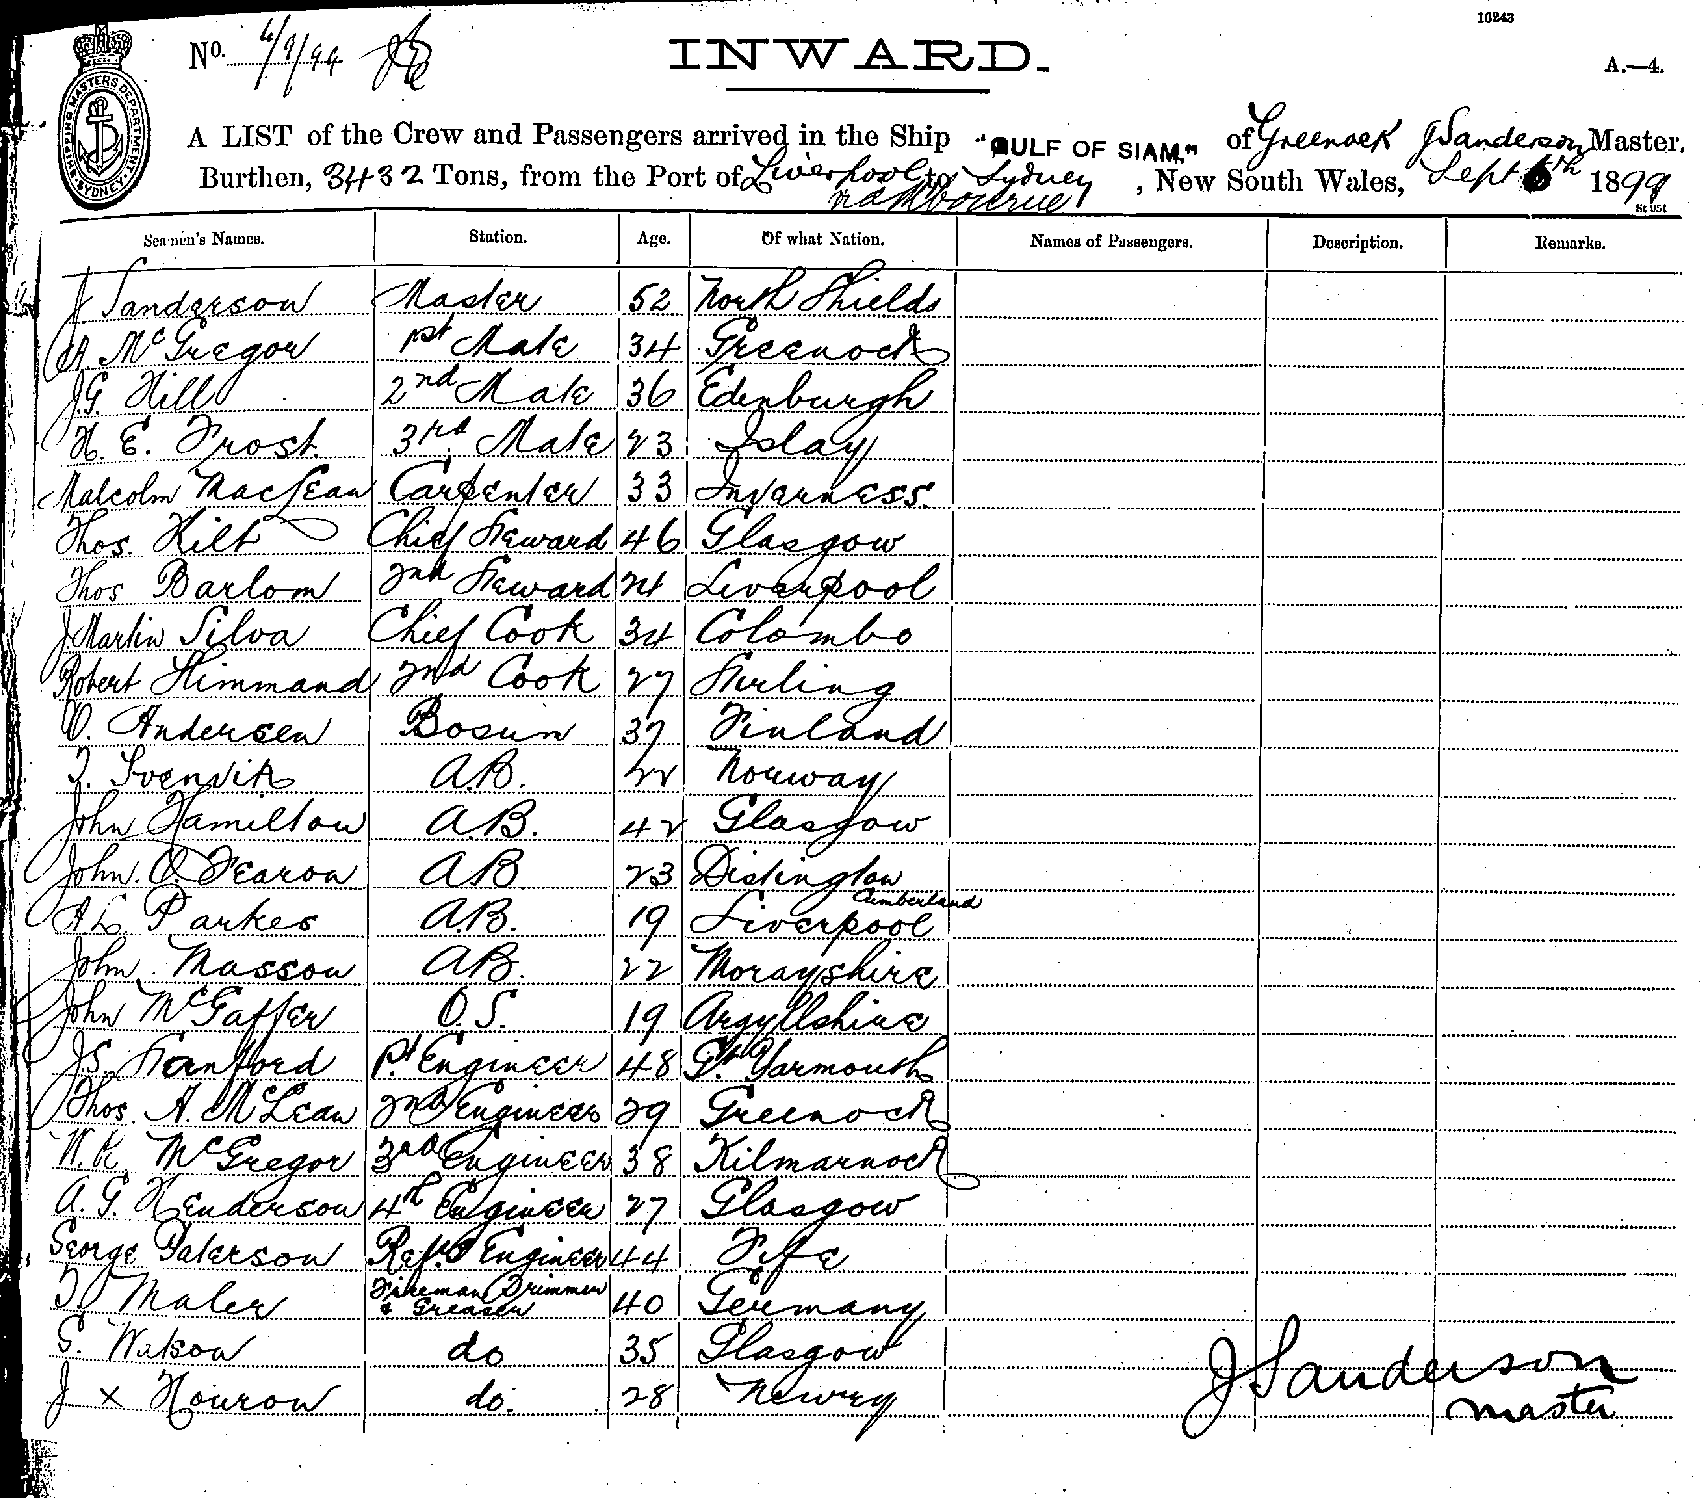 10243
No. 6/9/99
INWARD.
A.—4.
SHIPPING MASTERS DEPARTMENT SYDNEY
A LIST of the Crew and Passengers arrived in the Ship "GULF OF SIAM." of Greenock J Sanderson Master.
Burthen, 3432 Tons, from the Port of Liverpool to Sydney, New South Wales, Sept 6th 1899
via Melbourne
Seamen's Names. Station. Age. Of what Nation. Names of Passengers. Description. Remarks.
J Sanderson Master 52 North Shields
McGregor 1st Mate 34 Greenock
J.G. Hill 2nd Mate 36 Edinburgh
H. E. Frost. 3rd Mate 23 Islay
Malcolm MacLean Carpenter 33 Inverness.
Thos. Hilt Chief Steward 46 Glasgow
Thos Barlom 2nd Steward 24 Liverpool
J Martin Silva Chief Cook 34 Colombo
Robert Stimmand 2nd Cook 27 Stirling
O. Andersen Bosun 37 Finland
T. Svenvik A.B. 22 Norway
John Hamilton A.B. 42 Glasgow
John O. Fearon A.B 23 Distington
Cumberland
A L. Parkes A.B. 19 Liverpool
John Masson A.B. 22 Morayshire
John McGaffer O.S. 19 Argyllshire
J.S. Stanford 1st Engineer 48 Gt. Yarmouth
Thos. A. McLean 2nd Engineer 29 Greenock
W.K. McGregor 3rd Engineer 38 Kilmarnock
A. G. Henderson 4th Engineer 27 Glasgow
George Paterson Refr. Engineer 44 Fife
Maler Fireman Trimmer
& Greaser 40 Germany
G. Watson do 35 Glasgow
J x Houron do. 28 Newry
J Sanderson
master